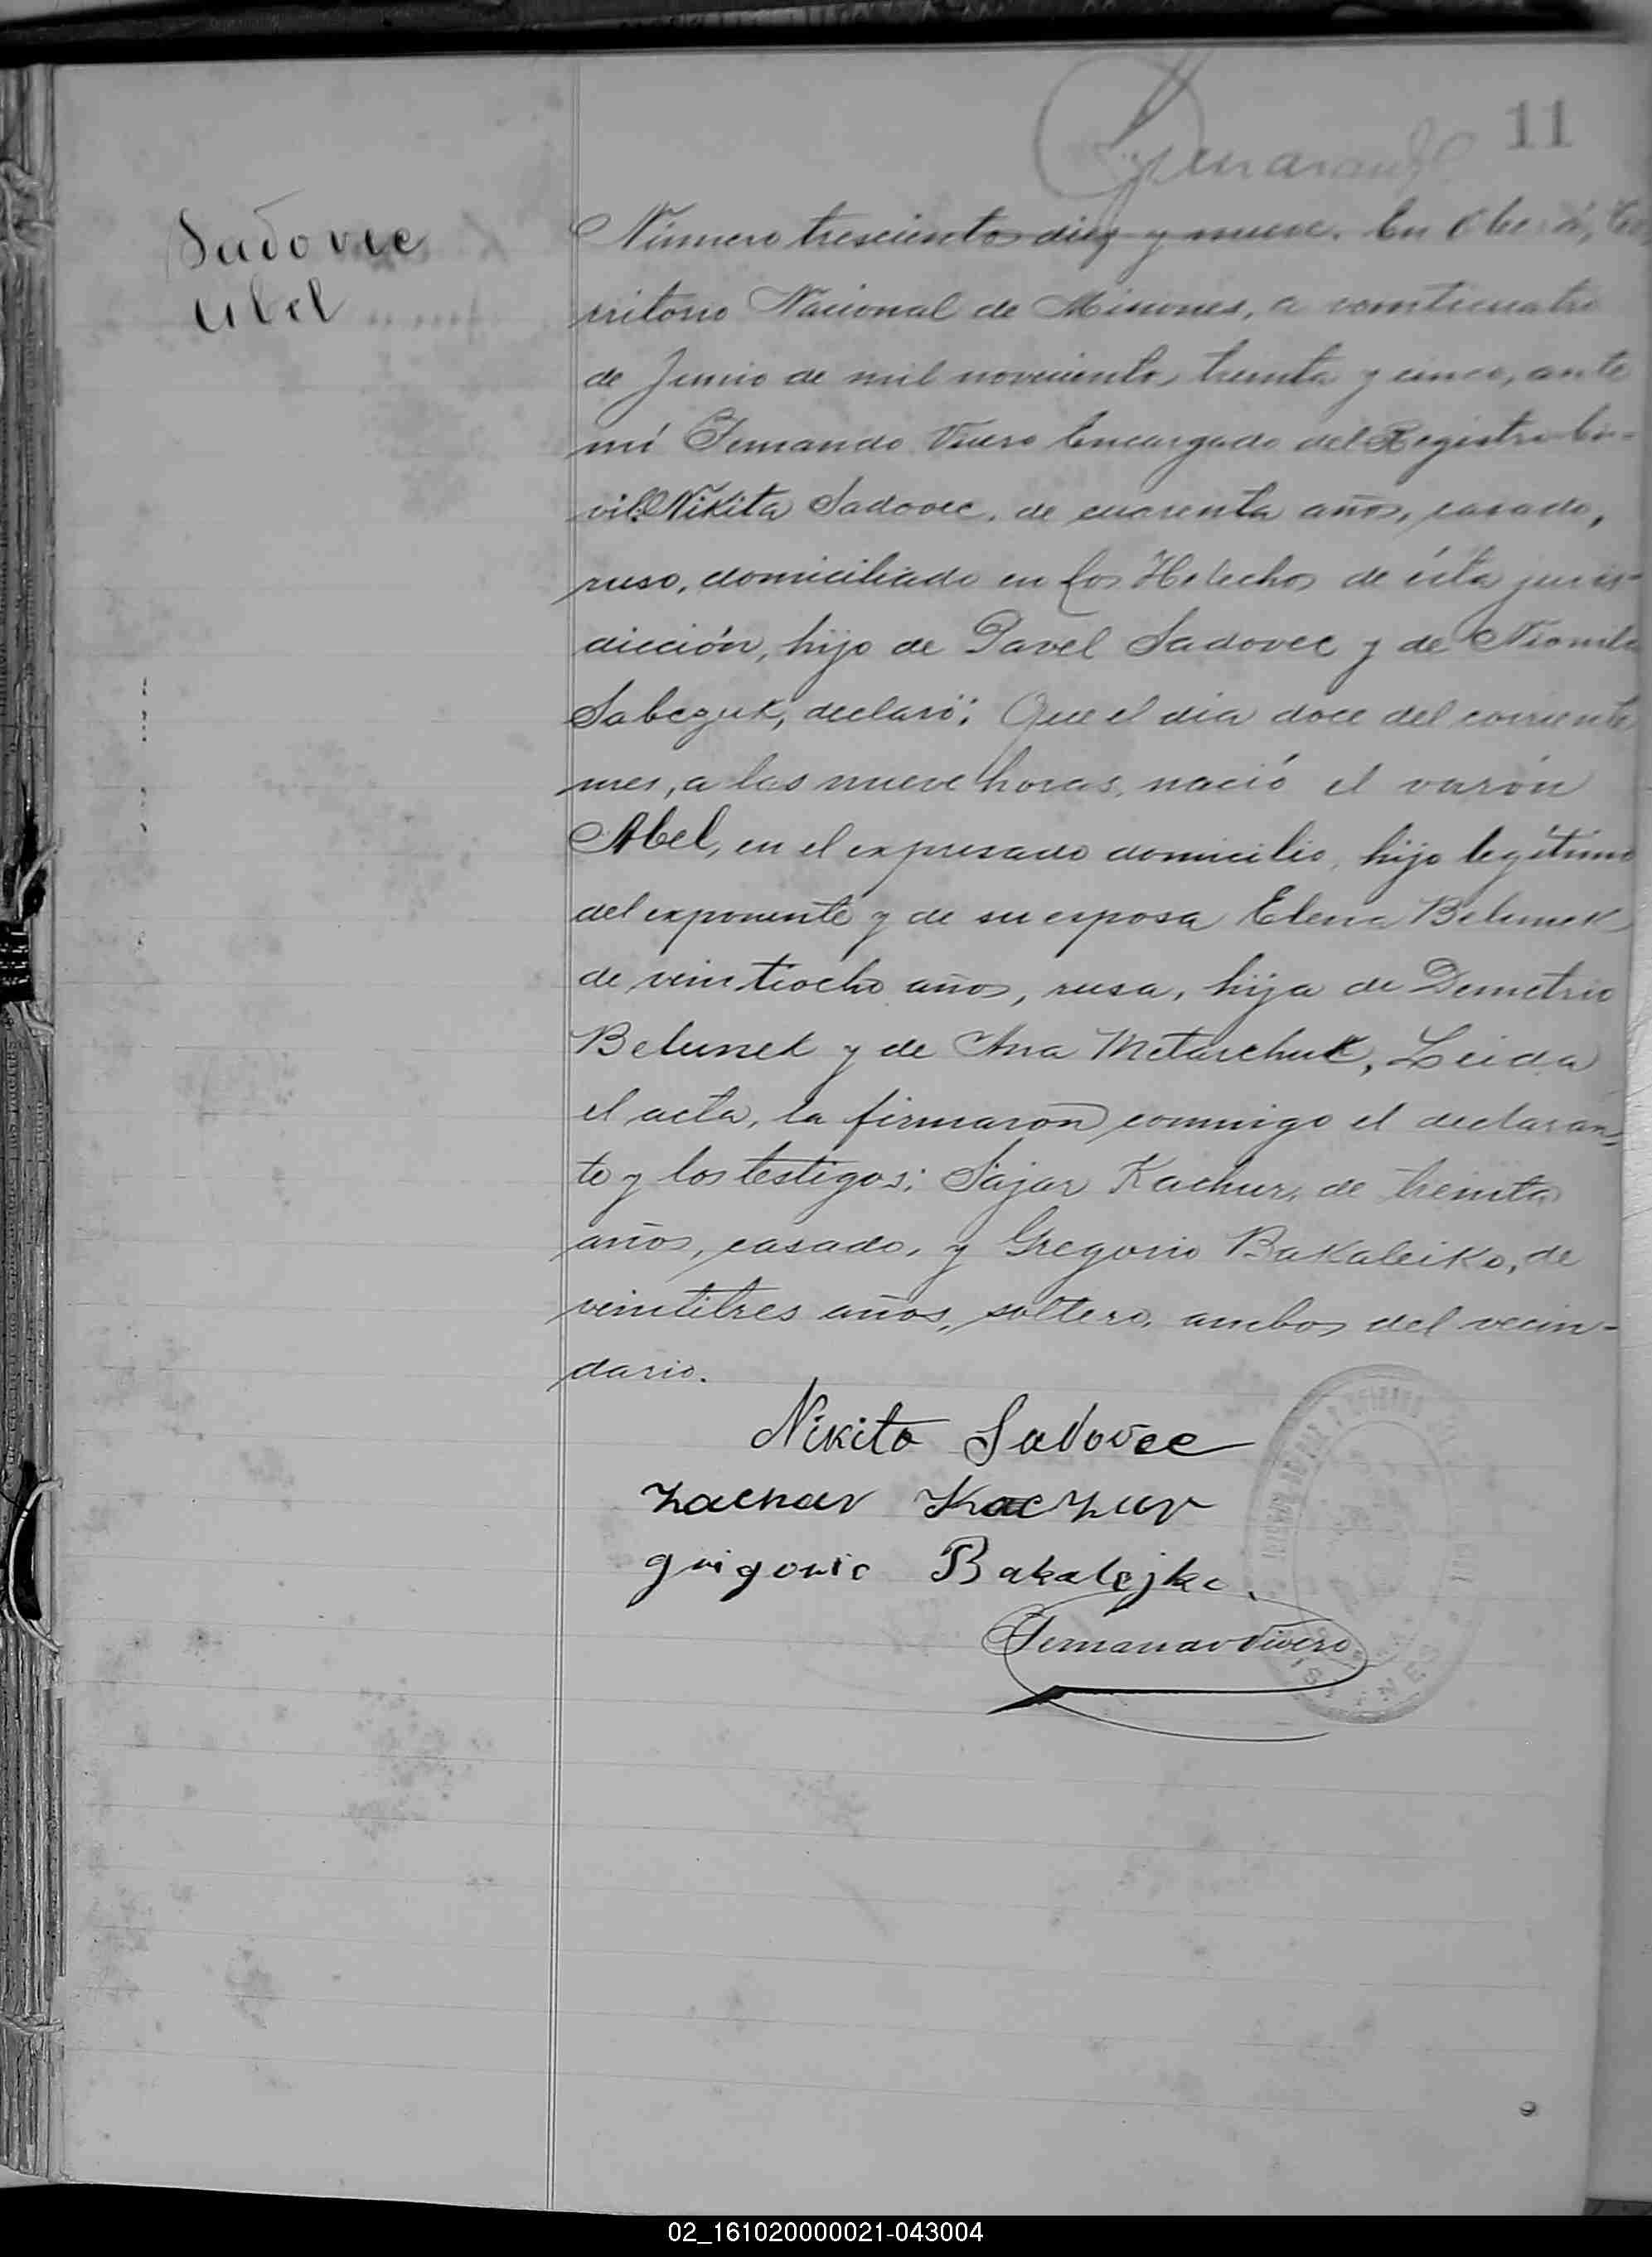 11
Sadovec
Abel
Número trescientos diez y nueve. En Oberá, Te
rritorio Nacional de Misiones, a veinticuatro
de Junio de mil novecientos treinta y cinco, ante
mí Fernando Vivero Encargado del Registro Ci-
vil: Nikita Sadovec, de cuarenta años, casado,
ruso, domiciliado en Los Helechos de ésta juris-
dicción, hijo de Pavel Sadovec y de Neonila
Sabczuk, declaró: Que el día doce del corriente
mes, a las nueve horas, nació el varón
Abel, en el expresado domicilio, hijo legítimo
del exponente y de su esposa Elena
de veintiocho años, rusa, hija de Demetrio
Belunek y de Ana Metarchuk, Leida
el acta, la firmaron conmigo el declaran=
te y los testigos: Sajar Kachur, de treinta
años, casado, y Gregorio Bakaleiko, de
veintitres años, soltero, ambos del vecin-
dario.
Nikita Sadovec
Zachar Kaczur
grigoric Bakalejko.
Fernando Vivero
02_161020000021-043004